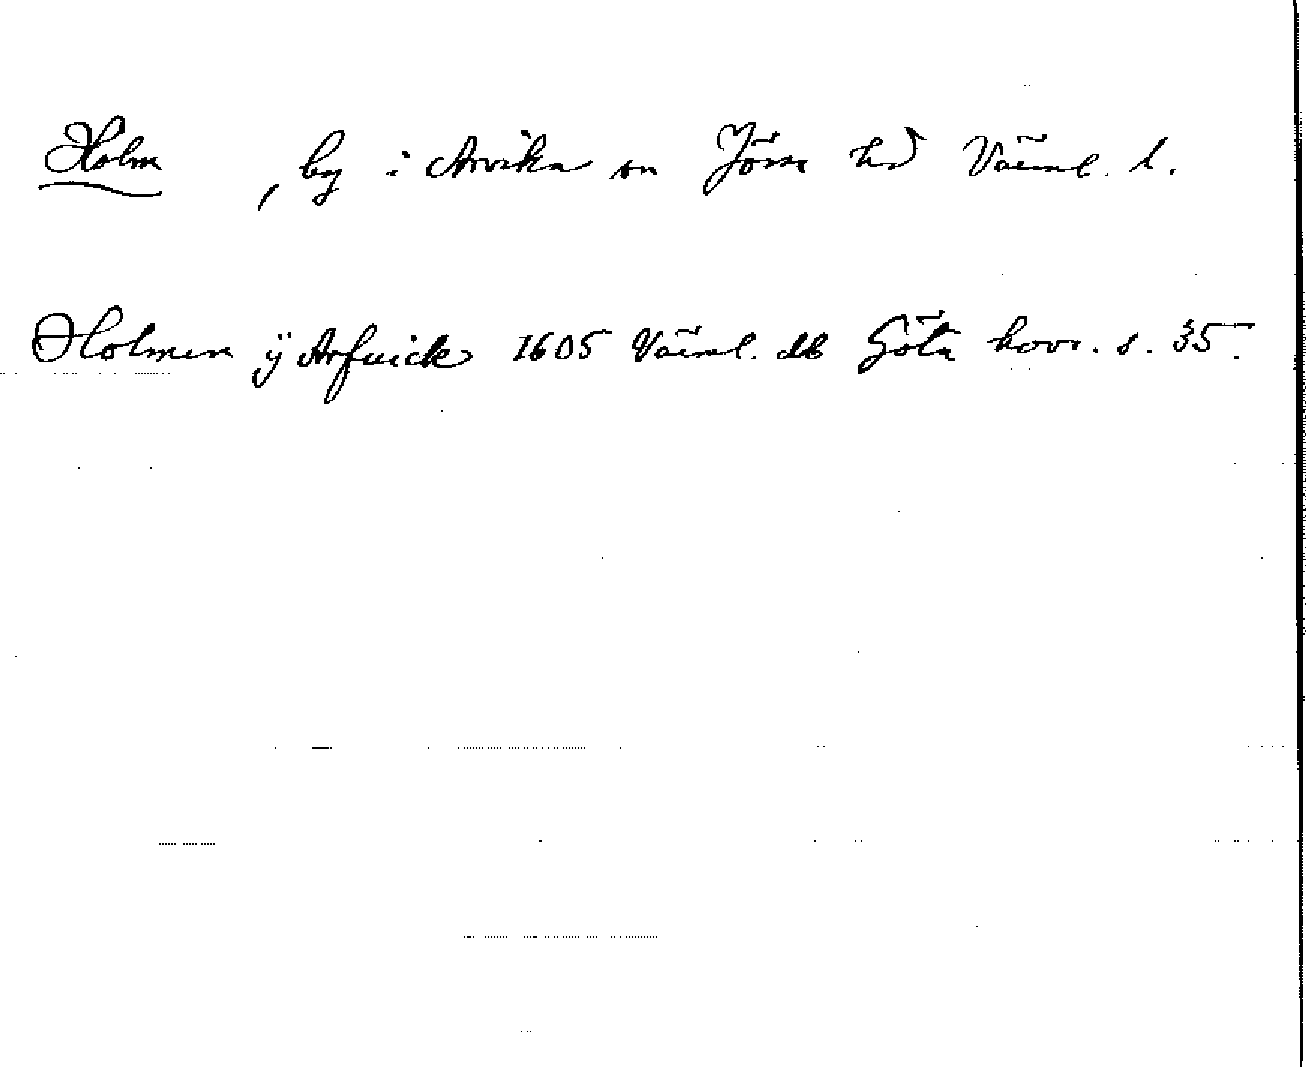 Holm , by i Arvika sn Jösse hd Värml. l.
Holmen ÿ Arfuicke 1605 Värml. db Göta hovr. s. 35.